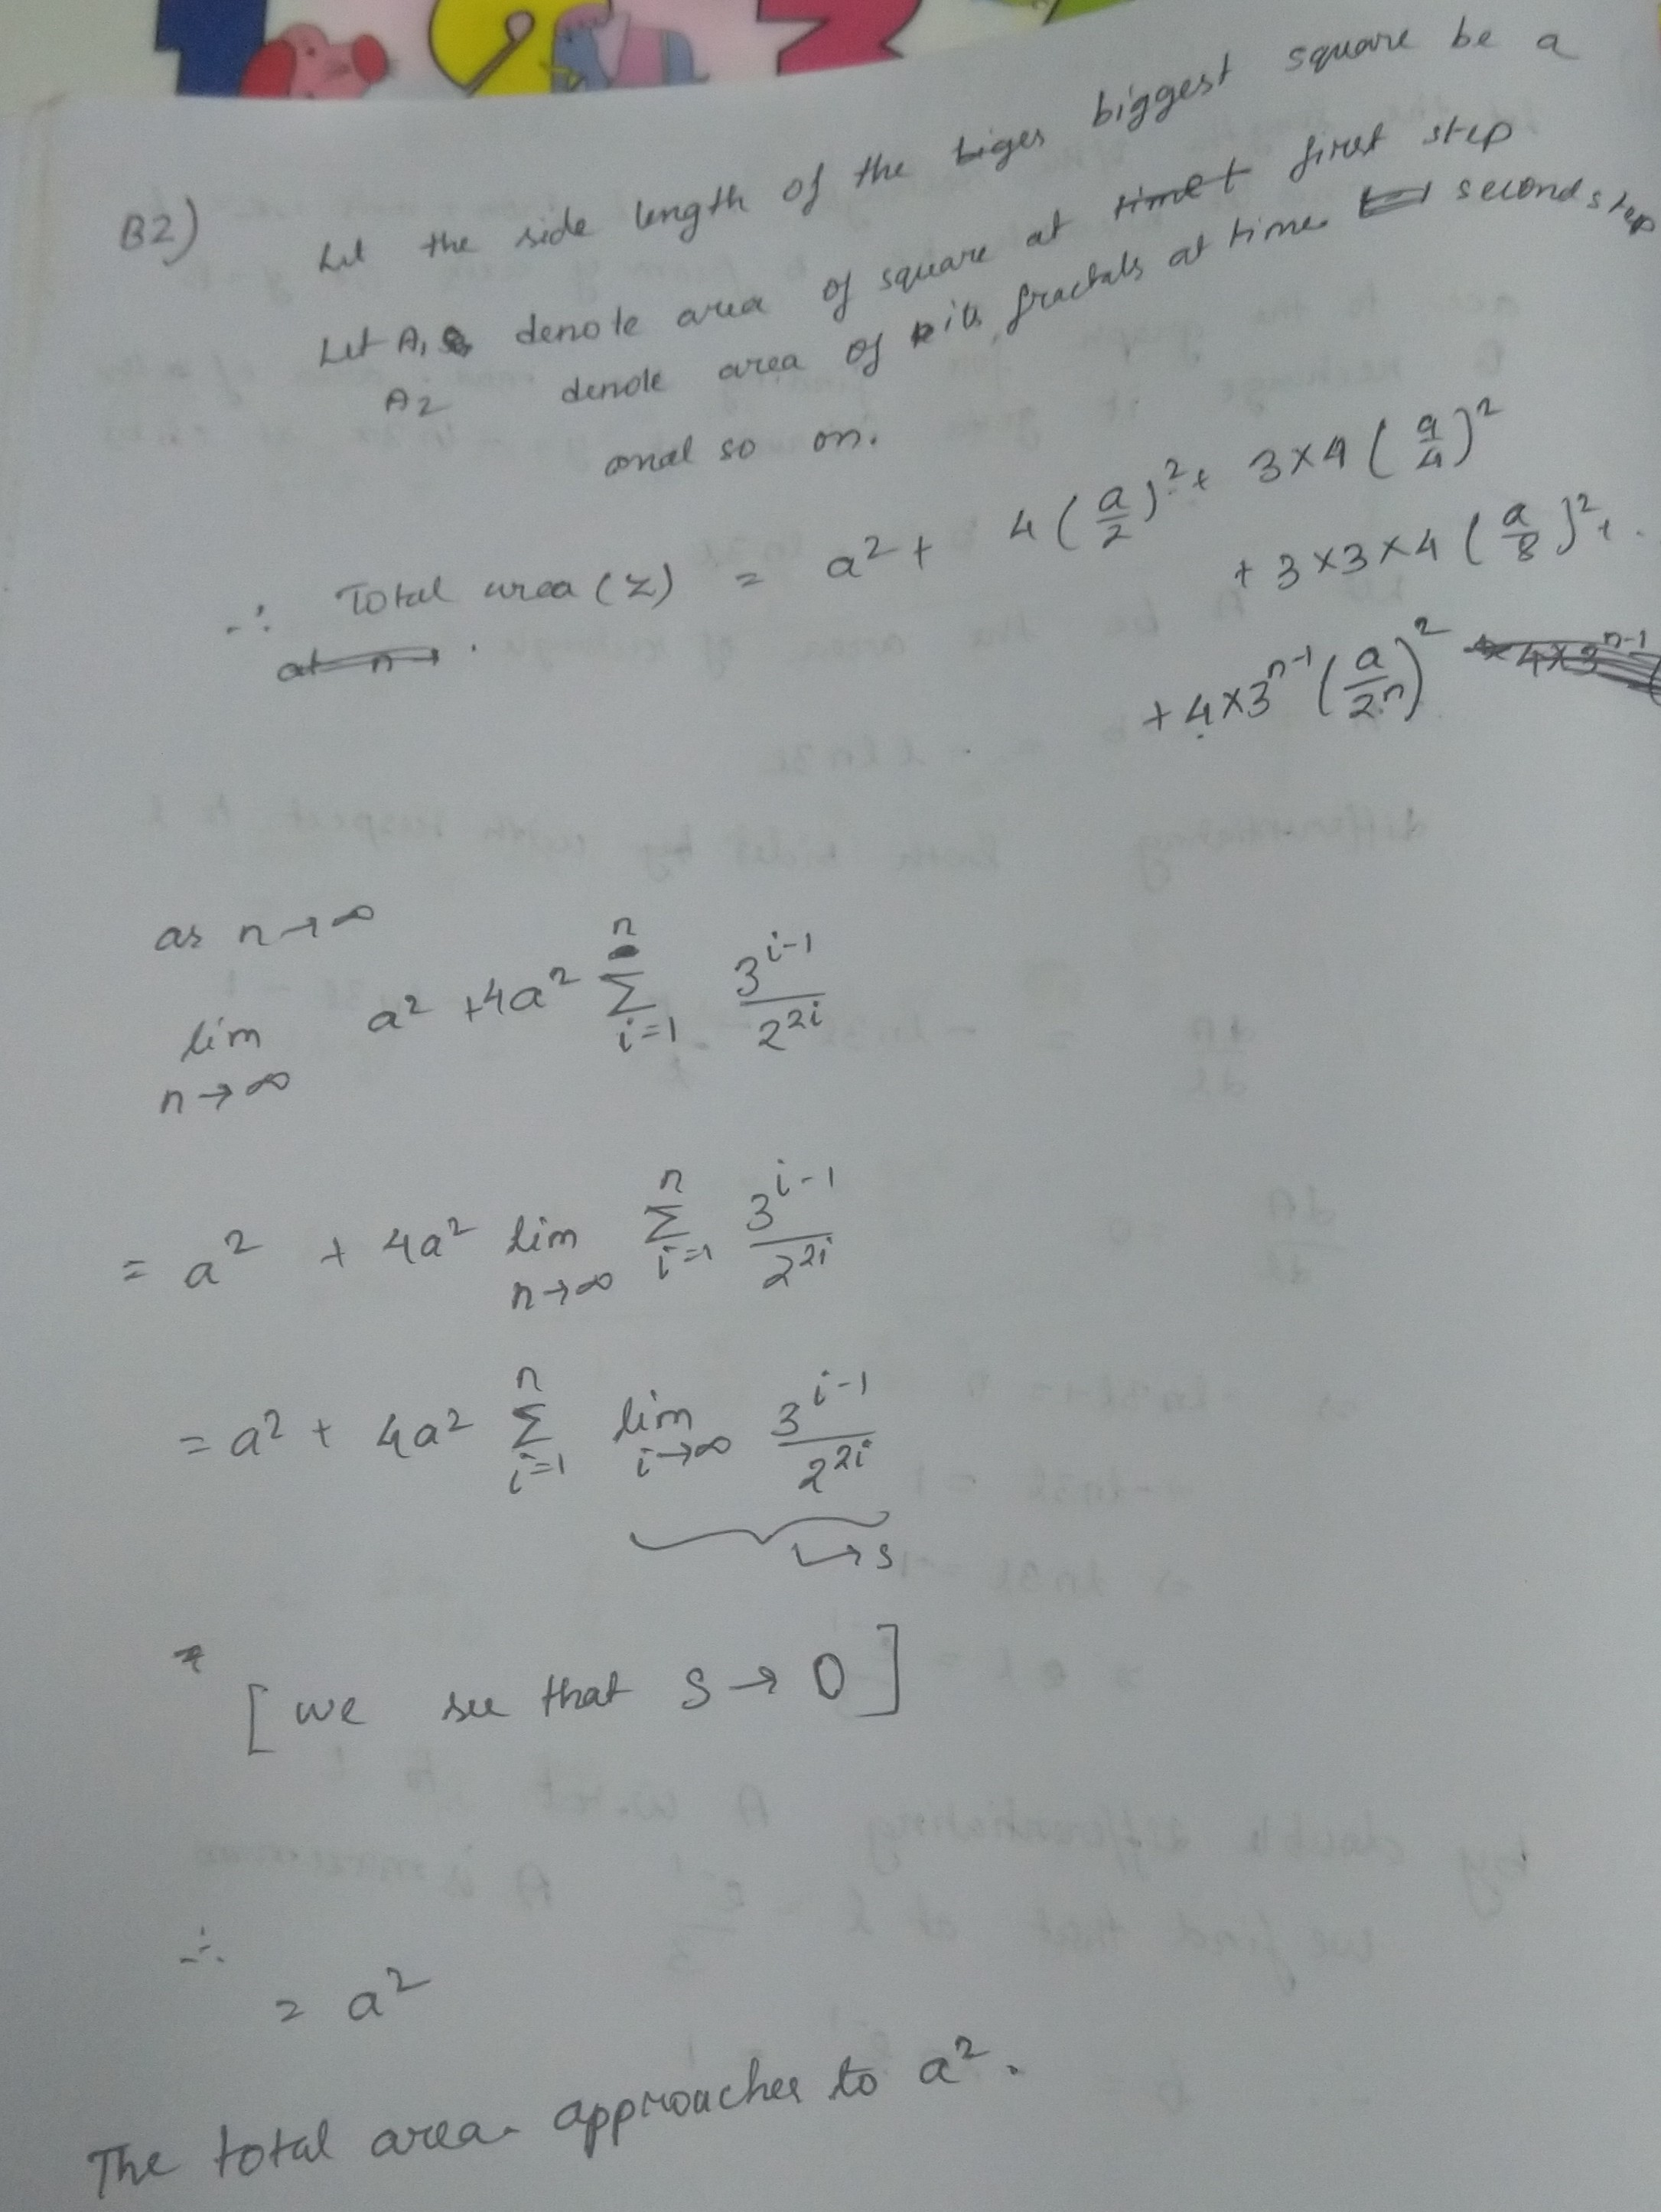 B2) Let the side length of the biges biggest square be a
Let A₁ denote area of square at time t first step
A2 denote area of its fractals at time second step
and so on.
∴ Total area (Z) = a² + 4(a/2)² + 3×4(a/4)²
+ 3×3×4(a/8)² + .
at n→ .
+ 4×3ⁿ⁻¹(a/2ⁿ)² + 4×3ⁿ⁻¹
as n→∞
lim n→∞ a² + 4a² Σ i=1 n 3^(i-1)/2^(2i)
= a² + 4a² lim n→∞ Σ i=1 n 3^(i-1)/2^(2i)
= a² + 4a² Σ i=1 n lim i→∞ 3^(i-1)/2^(2i)
↳ s
[we see that s → 0]
∴
= a²
The total area approaches to a².